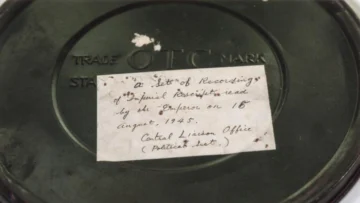 TRADE OTC MARK
STA
A Set of Recordings
of Imperial Rescript read
by the Emperor on 15
August, 1945.
Central Liaison Office
(Political Sect.)